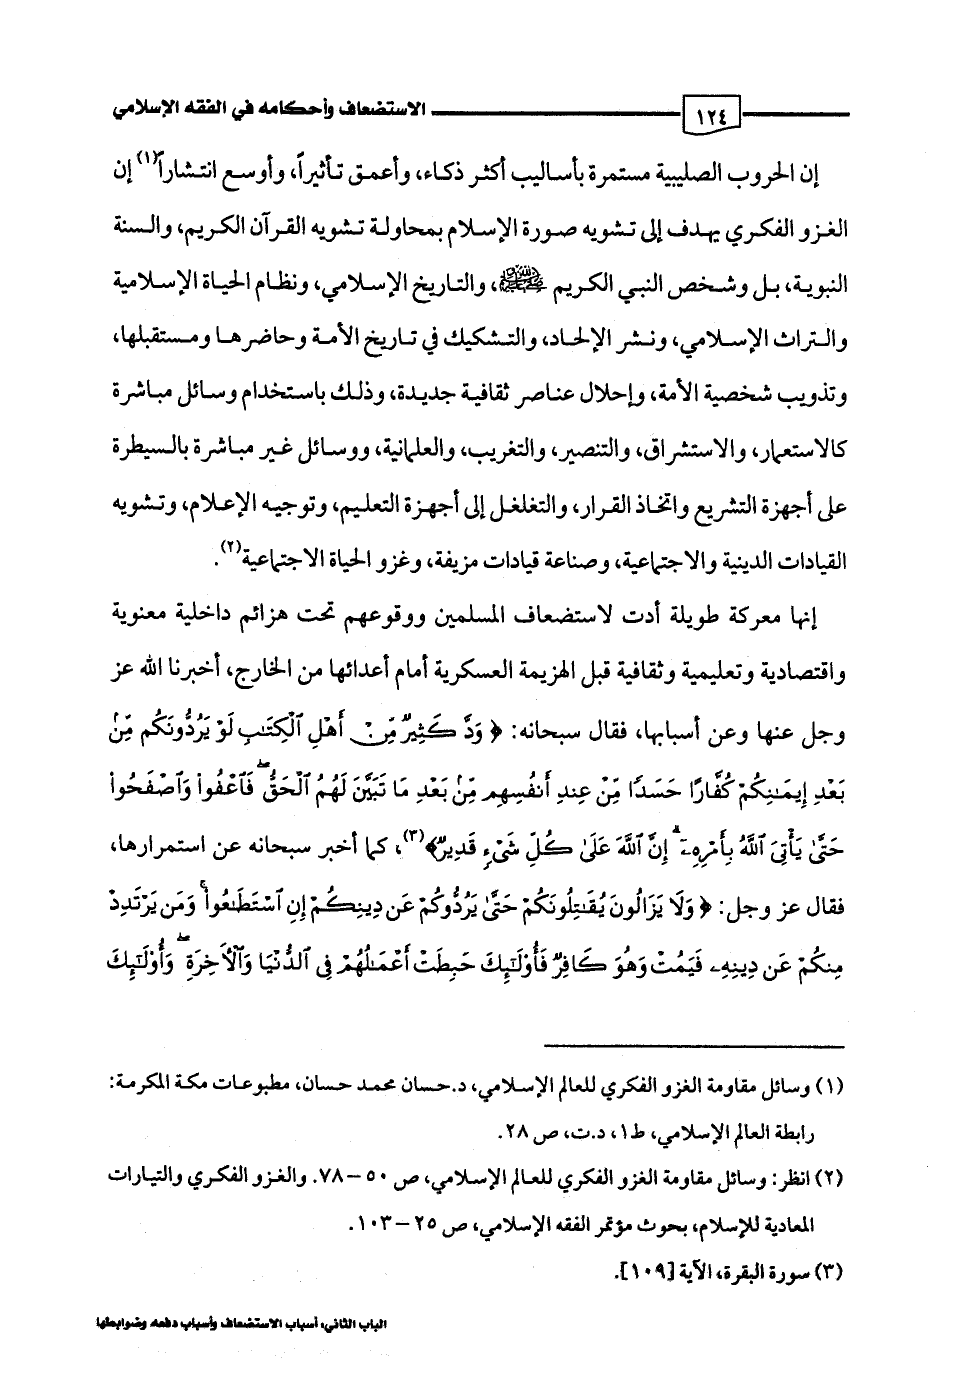 ١٢٤ الاستضعاف وأحكامه في الفقه الإسلامي
إن الحروب الصليبية مستمرة بأساليب أكثر ذكاء، وأعمق تأثيراً، وأوسع انتشاراً(١) إن
الغزو الفكري يهدف إلى تشويه صورة الإسلام بمحاولة تشويه القرآن الكريم، والسنة
النبوية، بل وشخص النبي الكريم ﷺ، والتاريخ الإسلامي، ونظام الحياة الإسلامية
والتراث الإسلامي، ونشر الإلحاد، والتشكيك في تاريخ الأمة وحاضرها ومستقبلها،
وتذويب شخصية الأمة، وإحلال عناصر ثقافية جديدة، وذلك باستخدام وسائل مباشرة
كالاستعمار، والاستشراق، والتنصير، والتغريب، والعلمانية، ووسائل غير مباشرة بالسيطرة
على أجهزة التشريع واتخاذ القرار، والتغلغل إلى أجهزة التعليم، وتوجيه الإعلام، وتشويه
القيادات الدينية والاجتماعية، وصناعة قيادات مزيفة، وغزو الحياة الاجتماعية(٢).
إنها معركة طويلة أدت لاستضعاف المسلمين ووقوعهم تحت هزائم داخلية معنوية
واقتصادية وتعليمية وثقافية قبل الهزيمة العسكرية أمام أعدائها من الخارج، أخبرنا الله عز
وجل عنها وعن أسبابها، فقال سبحانه: ﴿ وَدَّ كَثِيرٌ مِّنْ أَهْلِ ٱلْكِتَٰبِ لَوْ يَرُدُّونَكُم مِّنۢ
بَعْدِ إِيمَٰنِكُمْ كُفَّارًا حَسَدًا مِّنْ عِندِ أَنفُسِهِم مِّنۢ بَعْدِ مَا تَبَيَّنَ لَهُمُ ٱلْحَقُّ ۖ فَٱعْفُوا۟ وَٱصْفَحُوا۟
حَتَّىٰ يَأْتِىَ ٱللَّهُ بِأَمْرِهِۦٓ ۗ إِنَّ ٱللَّهَ عَلَىٰ كُلِّ شَىْءٍ قَدِيرٌ﴾(٣)، كما أخبر سبحانه عن استمرارها،
فقال عز وجل: ﴿ وَلَا يَزَالُونَ يُقَٰتِلُونَكُمْ حَتَّىٰ يَرُدُّوكُمْ عَن دِينِكُمْ إِنِ ٱسْتَطَٰعُوا۟ ۚ وَمَن يَرْتَدِدْ
مِنكُمْ عَن دِينِهِۦ فَيَمُتْ وَهُوَ كَافِرٌ فَأُو۟لَٰٓئِكَ حَبِطَتْ أَعْمَٰلُهُمْ فِى ٱلدُّنْيَا وَٱلْءَاخِرَةِ ۖ وَأُو۟لَٰٓئِكَ
(١) وسائل مقاومة الغزو الفكري للعالم الإسلامي، د.حسان محمد حسان، مطبوعات مكة المكرمة:
رابطة العالم الإسلامي، ط١، د.ت، ص ٢٨.
(٢) انظر: وسائل مقاومة الغزو الفكري للعالم الإسلامي، ص ٥٠ – ٧٨. والغزو الفكري والتيارات
المعادية للإسلام، بحوث مؤتمر الفقه الإسلامي، ص ٢٥ – ١٠٣.
(٣) سورة البقرة، الآية [١٠٩].
الباب الثاني، أسباب الاستضعاف وأسباب دفعه وضوابطها